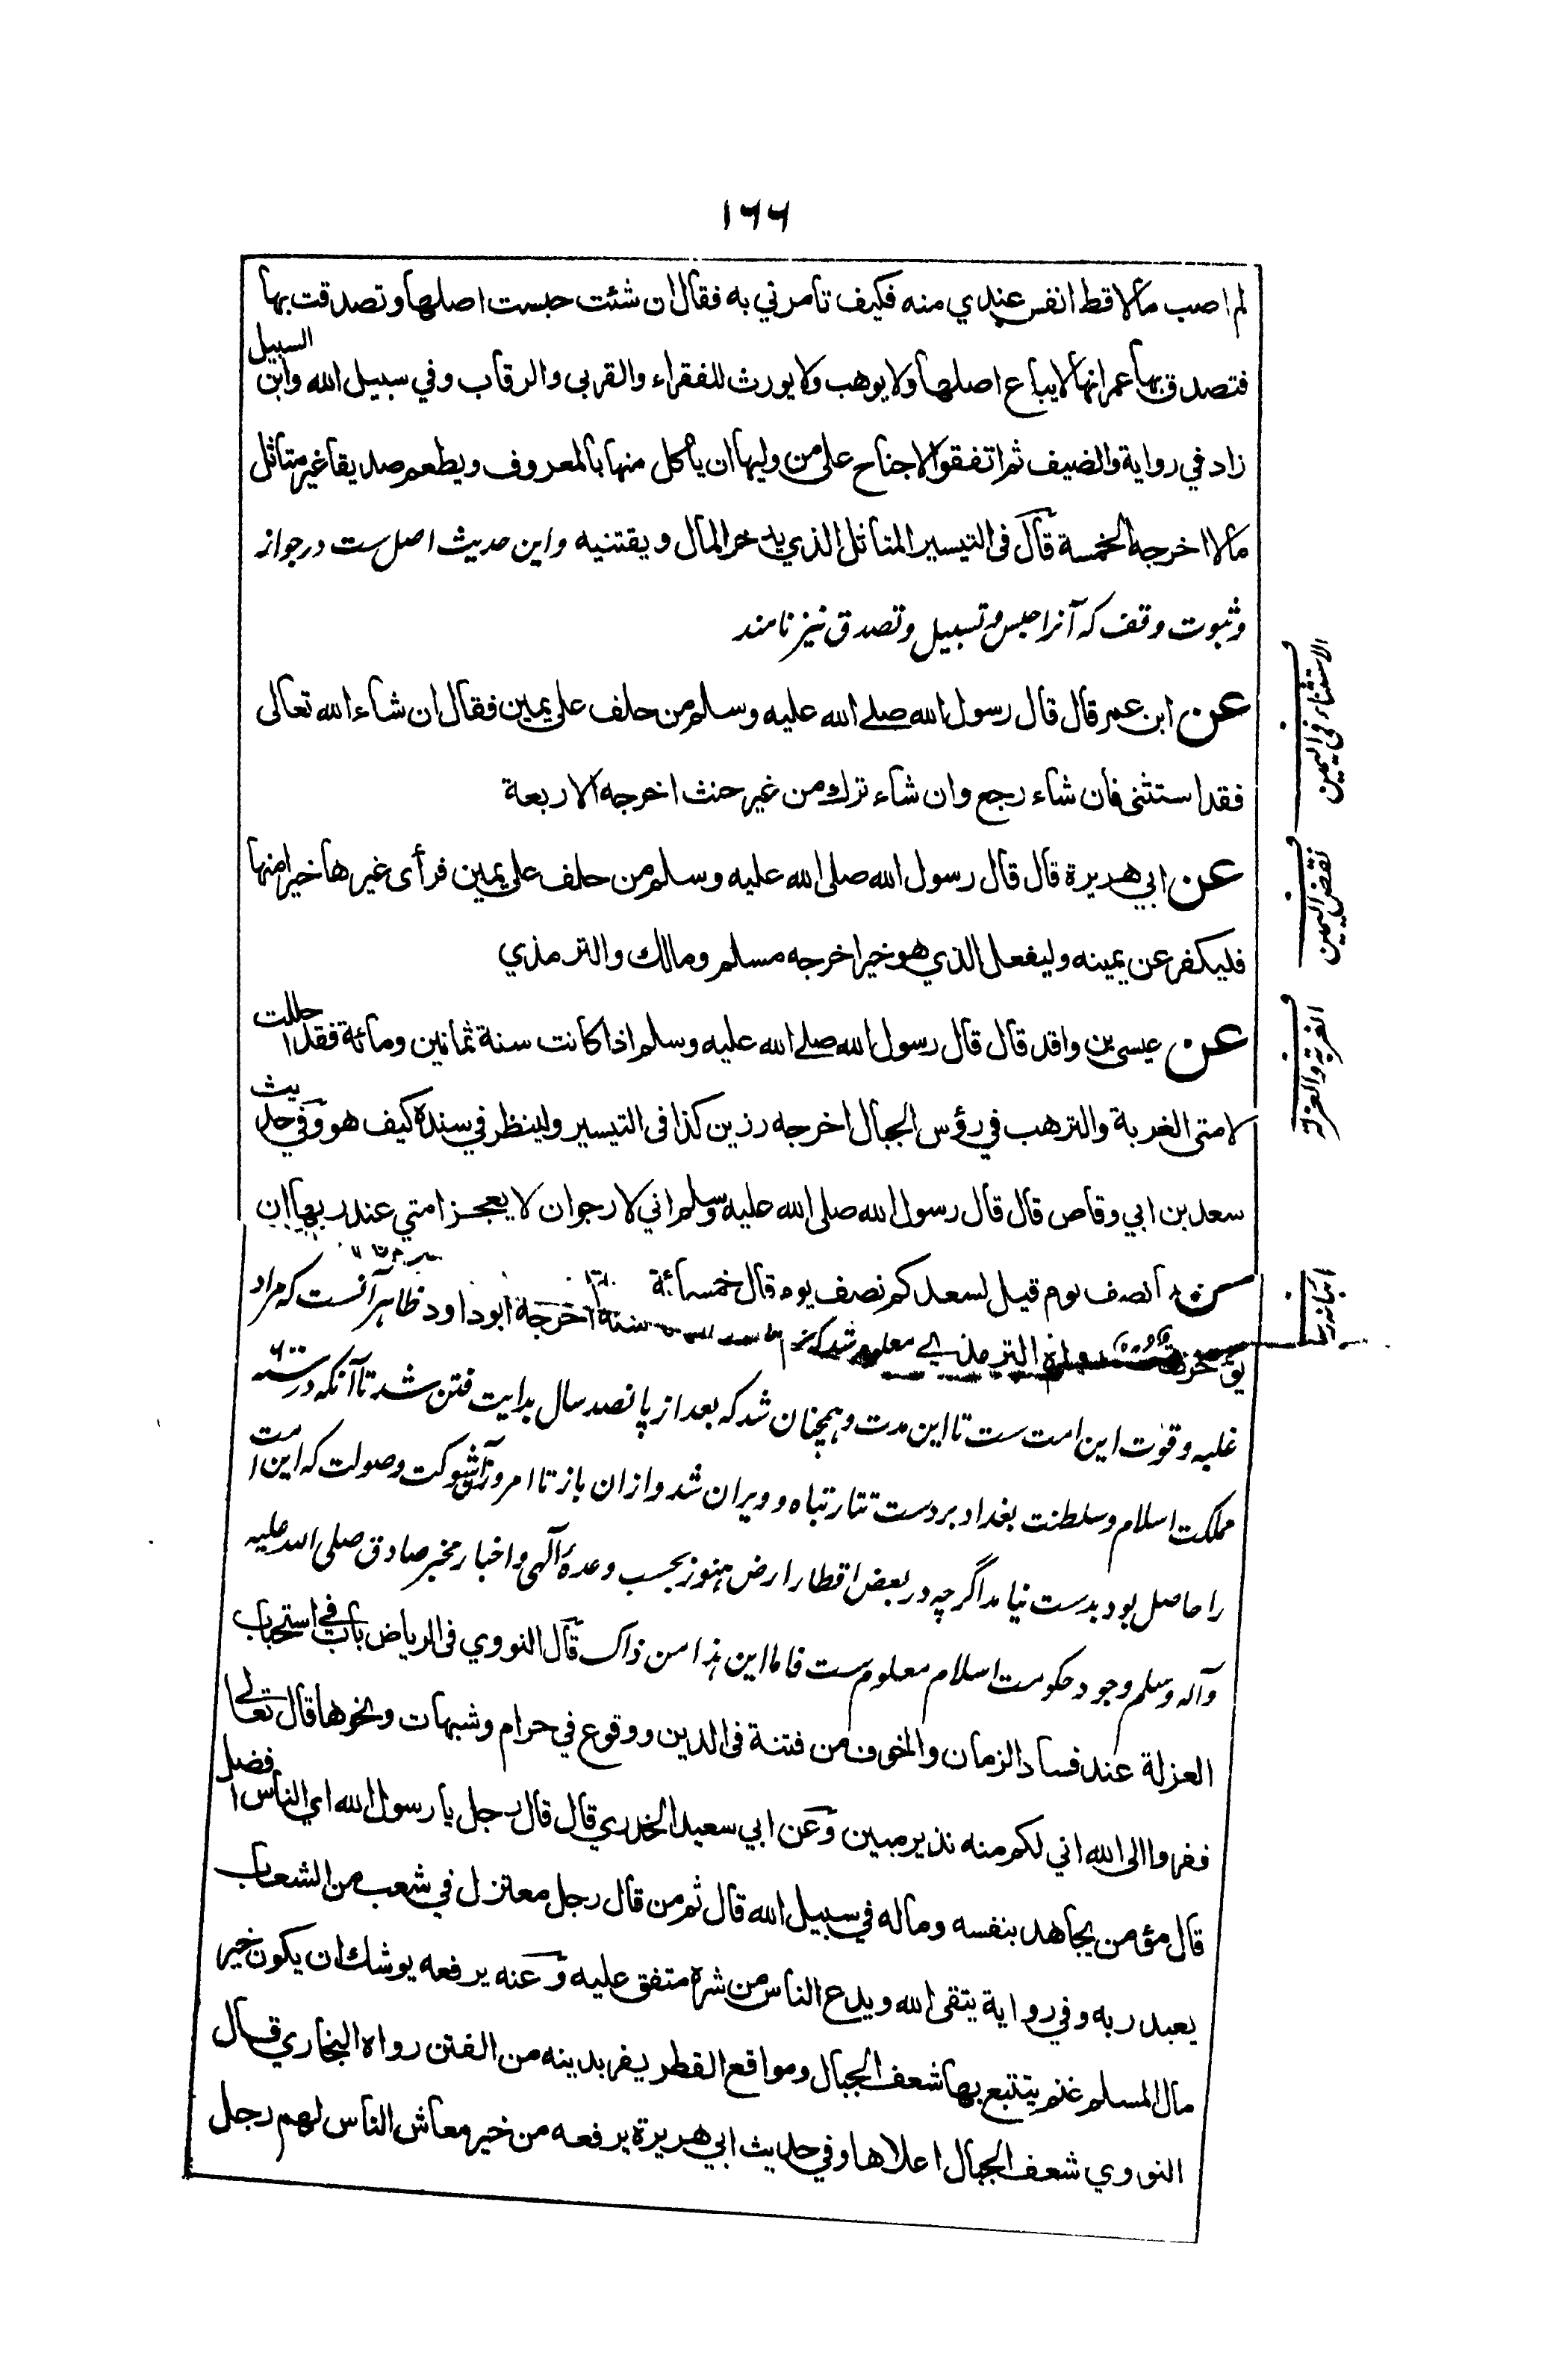 ١٦٦
لم اصب مالا قط انفس عندي منه فكيف تامرني به فقال ان شئت حبست اصلها وتصدقت بها
فتصدق بها عمر انها لا يباع اصلها ولا يوهب ولا يورث للفقراء والقربى والرقاب وفي سبيل الله وابن السبيل
زاد في رواية والضيف ثم اتفقوا لا جناح على من وليها ان ياكل منها بالمعروف ويطعم صديقا غير متاثل
مالا اخرجه الخمسة قال فى التيسير المتاثل الذي يدخر المال ويقتنيه واين حديث اصل ست در جواز
وثبوت وقف كه آنرا حبس و تسبيل وتصدق نيز نامند
عن ابن عمر قال قال رسول الله صلے الله عليه وسلم من حلف على يمين فقال ان شاء الله تعالى
فقد استثنى فان شاء رجع وان شاء ترك من غير حنث اخرجه الاربعة
عن ابي هريرة قال قال رسول الله صلى الله عليه وسلم من حلف على يمين فرأى غيرها خيرا منها
فليكفر عن يمينه وليفعل الذي هو خير اخرجه مسلم ومالك والترمذي
عن عيسى بن واقد قال قال رسول الله صلے الله عليه وسلم اذا كانت سنة ثمانين ومائة فقد احللت
لامتى الغربة والترهب في رؤس الجبال اخرجه رزين كذا فى التيسير ولينظر في سنده كيف هو وفي حديث
سعد بن ابي وقاص قال قال رسول الله صلى الله عليه وسلم اني لارجو ان لا يعجز امتي عند ربها ان
نصف يوم قيل لسعد كم نصف يوم قال خمسمائة
سنة اخرجه ابو داود ظاهر آنست كه مراد
غلبه وقوت اين امت ست تا اين مدت وهمچنان شد كه بعد از پانصد سال بدايت فتن شد تا آنكه در سنه ٦٠٠
مملكت اسلام وسلطنت بغداد بر دست تتار تباه و ويران شد وازان باز تا امروز آن شوكت وصولت كه اين امت
را حاصل بود بدست نيامد اگر چه در بعض اقطار ارض هنوز بحسب وعدهٔ آلهى واخبار مخبر صادق صلى الله عليه
وآله وسلم وجود حكومت اسلام معلوم ست فاما اين هذا من ذاك قال النووي فى الرياض باب فى استحباب
العزلة عند فساد الزمان والخوف من فتنة فى الدين ووقوع في حرام وشبهات ونحوها قال تعالى
ففروا الى الله اني لكم منه نذير مبين وعن ابي سعيد الخدري قال قال رجل يا رسول الله اي الناس افضل
قال مؤمن يجاهد بنفسه وماله في سبيل الله قال ثم من قال رجل معتزل في شعب من الشعاب
يعبد ربه وفي رواية يتقى الله ويدع الناس من شره متفق عليه وعنه يرفعه يوشك ان يكون خير
مال المسلم غنم يتتبع بها شعف الجبال ومواقع القطر يفر بدينه من الفتن رواه البخاري قال
النووي شعف الجبال اعلاها وفي حديث ابي هريرة يرفعه من خير معاش الناس لهم رجل
الاستثناء في اليمين
نقض اليمين
الغربة والعزلة